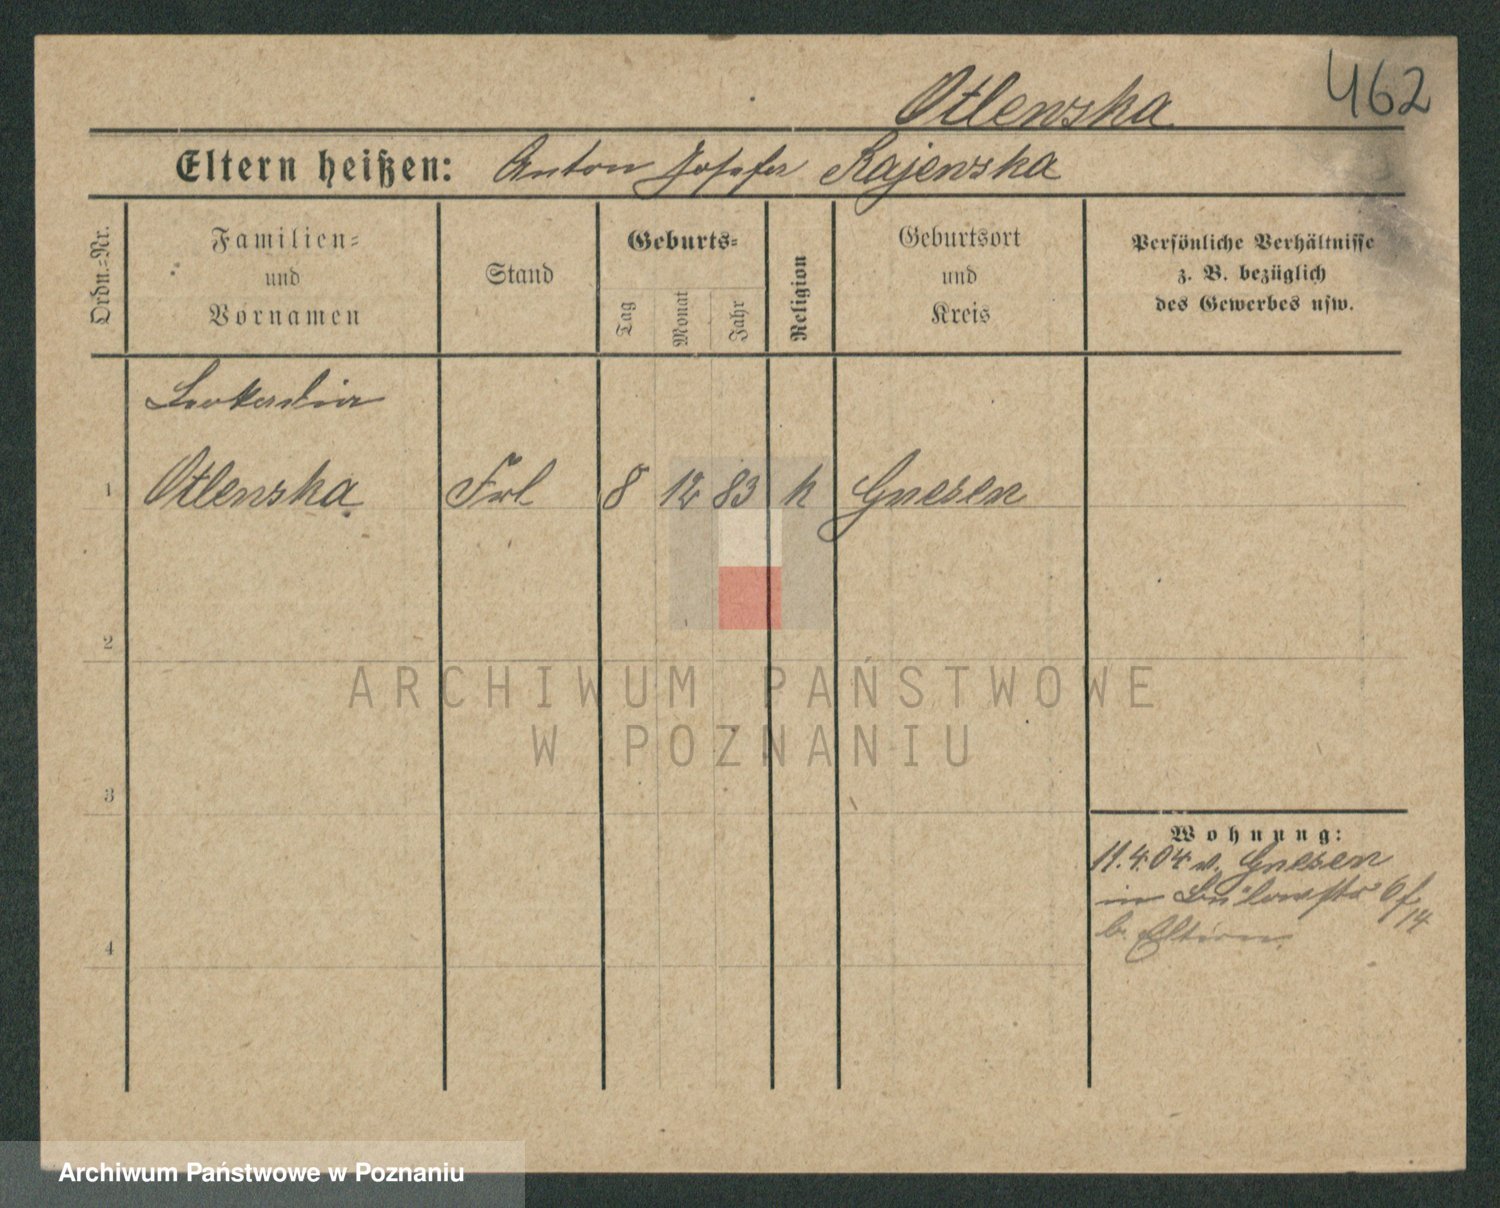 462
Otlenska
Eltern heißen: Anton Josefa Rajenska
Ordn.-Nr.
Familien-
und
Vornamen
Stand
Geburts-
Tag
Monat
Jahr
Religion
Geburtsort
und
Kreis
Persönliche Verhältnisse
z. B. bezüglich
des Gewerbes usw.
Leokadia
1 Otlenska Frl 8 12 83 k Gnesen
2
ARCHIWUM PAŃSTWOWE
W POZNANIU
3
Wohnung:
11.4.04 v. Gnesen
in Bülowstr 6 f
/14
4
b. Eltern.
Archiwum Państwowe w Poznaniu